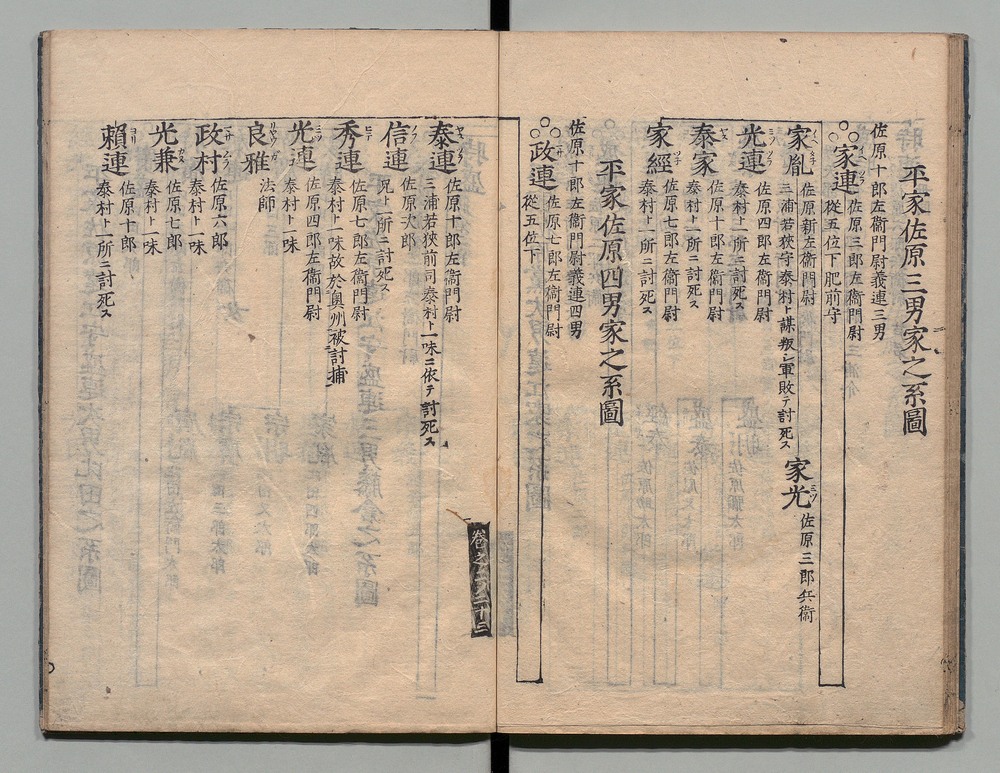 平家佐原三男家之系圖
佐原十郎左衞門尉義連三男
家連
佐原三郎左衞門尉
從五位下肥前守
家胤
佐原新左衞門尉
三浦若狹守泰村ト謀叛シ軍敗テ討死ス
家光
佐原三郎兵衞
光連
佐原四郎左衞門尉
泰村ト一所ニ討死ス
泰家
佐原十郎左衞門尉
泰村ト一所ニ討死ス
家經
佐原七郎左衞門尉
泰村ト一所ニ討死ス
平家佐原四男家之系圖
佐原十郎左衞門尉義連四男
政連
佐原七郎左衞門尉
從五位下
卷之二ノ二十三
泰連
佐原十郎左衞門尉
三浦若狹前司泰村ト一味ニ依テ討死ス
信連
佐原次郎
兄ト一所ニ討死ス
秀連
佐原七郎左衞門尉
泰村ト一味故於奥州被討捕
光連
佐原四郎左衞門尉
泰村ト一味
良雅
法師
政村
佐原六郎
泰村ト一味
光兼
佐原七郎
泰村ト一味
賴連
佐原十郎
泰村ト一所ニ討死ス